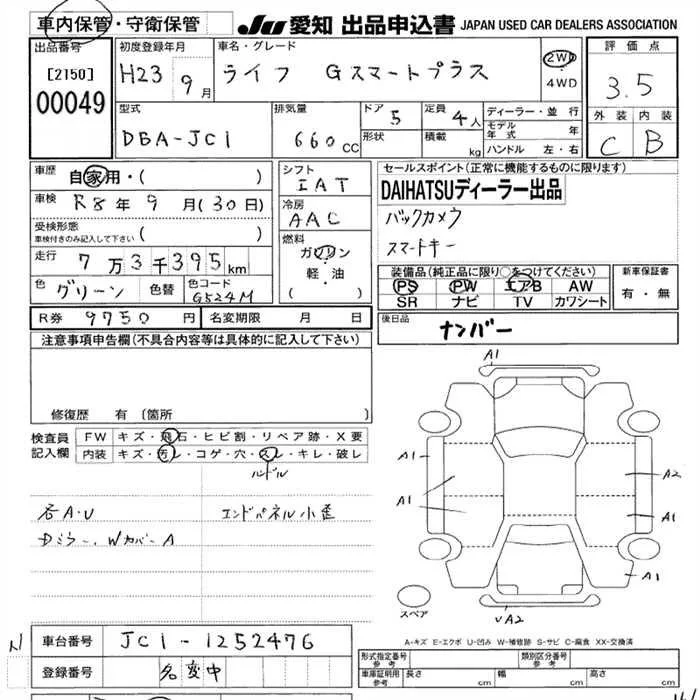 車内保管・守衛保管
JU 愛知 出品申込書 JAPAN USED CAR DEALERS ASSOCIATION
出品番号
[2150]
00049
初度登録年月
H23 9月
車名・グレード
ライフ Gスマートプラス
2WD
4WD
評価点
3.5
型式
DBA-JC1
排気量
660cc
ドア 5
形状
定員 4人
積載 kg
ディーラー・並行
モデル年式 年
ハンドル 左・右
外装 内装
C B
車歴 自家用・( )
車検 R8年9月(30日)
受検形態
車検付きのみ記入して下さい ( )
走行 7万3千395km
色 グリーン 色替 色コード G524M
シフト
IAT
冷房
AAC
燃料
ガソリン
軽・油
( )
セールスポイント(正常に機能するものに限ります)
DAIHATSUディーラー出品
バックカメラ
スマートキー
装備品(純正品に限り○をつけてください)
PS PW エアB AW
SR ナビ TV カワシート
新車保証書
有・無
R券 9750円 名変期限 月 日
後日品
ナンバー
注意事項申告欄(不具合内容等は具体的に記入して下さい)
修復歴 有〔箇所
検査員記入欄
FW キズ・飛石・ヒビ割・リペア跡・X要
内装 キズ・汚レ・コゲ・穴・スレ・キレ・破レ
ハンドル
各A・U エンドパネル小歪
Dミラー、WカバーA
A1
A1
A1
A2
A1
A1
UA2
スペア
A-キズ E-エクボ U-凹み W-補修跡 S-サビ C-腐食 XX-交換済
車台番号 JC1-1252476
登録番号 名変中
形式指定番号 参考
類別区分番号 参考
車庫証明用 参考 長さ cm 幅 cm 高さ cm